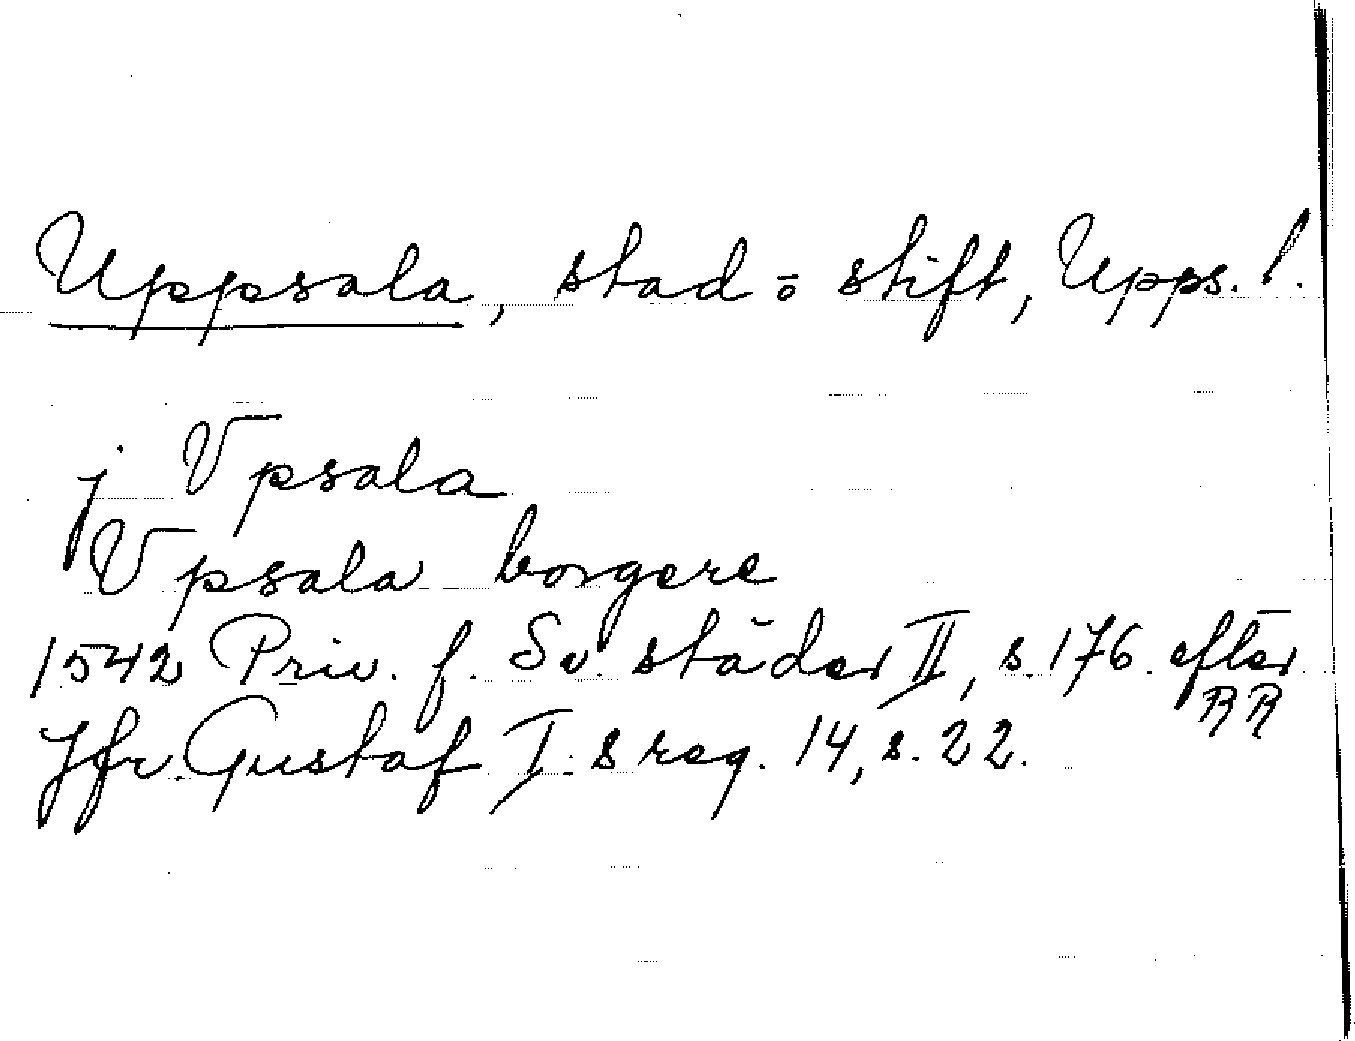 Uppsala, stad o stift, Upps. l.
j Vpsala
Vpsala borgere
1542 Priv. f. Sv. städer II, s. 176. efter
RR
Jfr Gustaf I:s reg. 14, s. 22.